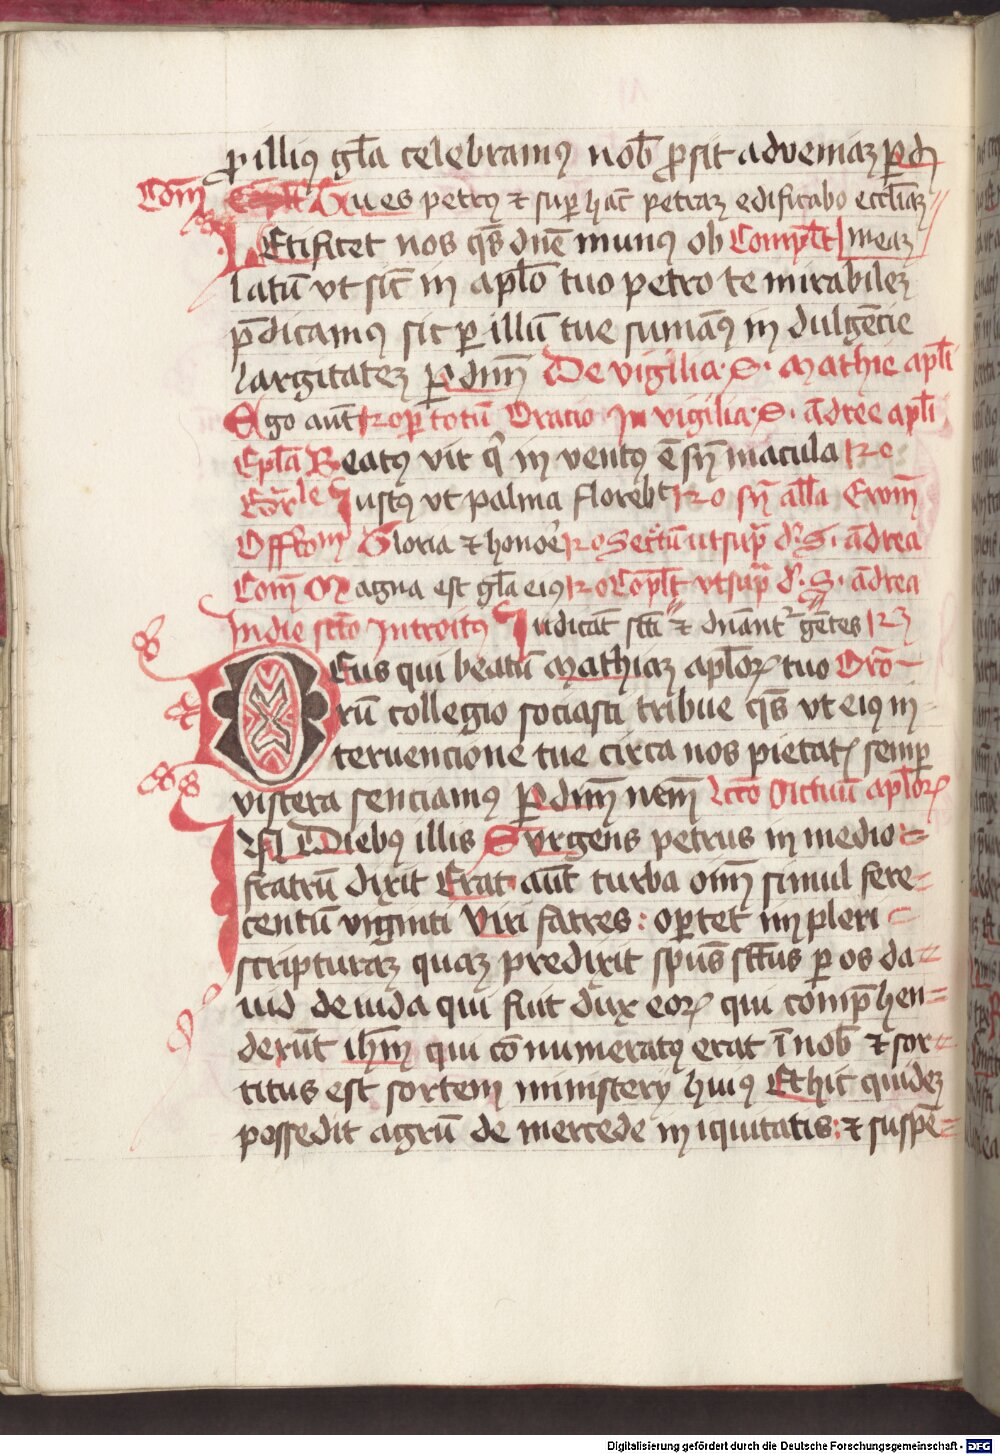 ꝓ illiꝰ gl̄a celebramꝰ nob̄ ꝓsit ad veniaꝫ ꝑ d
Com̄ Tu es petrꝰ et suꝑ hac̄ petraꝫ edificabo eccl̄iaꝫ
LEtificet nos qs̄ dn̄e munꝰ ob Compl̄t meaꝫ
latū vt sic̄ in apl̄o tuo petro te mirabileꝫ
p̄dicamꝰ sic ꝑ illū tue sumāꝰ in dulgēcie
largitateꝫ ꝑ dnm̄ De vigilia S. Mathie apl̄i
Ego aut̄ Ro ꝑ totū Oracio In vigilia S. ādree apl̄i
Epl̄a Beatꝰ vir qͥ in ventꝰ ē sn̄ macula Ro
Iustꝰ vt palma floreb̄t Ro sn̄ all̄a Ewm̄
Offtom̄ Gloria et honoꝛe Ro Secretū ut supͣ d̓ S. ādrea
Com̄ Magna est gl̄a eiꝰ Ro Cōpl̄t vt supͣ d̓ S. ādrea
In die sctō Introitꝰ Iudicāt sctī et dn̄ant̓ gētes Rꝫ
DEus qui beatū Mathiaꝫ apl̄oꝝ tuo Oro
rū collegio sociasti tribue qs̄ vt eiꝰ in
teruencione tue circa nos pietatꝭ semꝑ
viscera senciamꝰ ꝑ dnm̄ nem̄ Lccō Actuū apl̄oꝝ
IN Diebꝰ illis Surgens petrus in medio
fratrū dixit Erat aut̄ turba oīm simul fere
centū viginti Viri fratres : oꝑtet impleri
scripturaꝫ quaꝫ predixit spūs sctūs ꝑ os da
uid de iuda qui fuit dux eoꝝ qui comp̄hen
derūt ihm̄ qui co numeratꝰ erat ī nob̄ et sor
titus est sortem ministerij huiꝰ Et hic quideꝫ
possedit agrū de mercede iniquitatis : et suspē
Digitalisierung gefördert durch die Deutsche Forschungsgemeinschaft - DFG